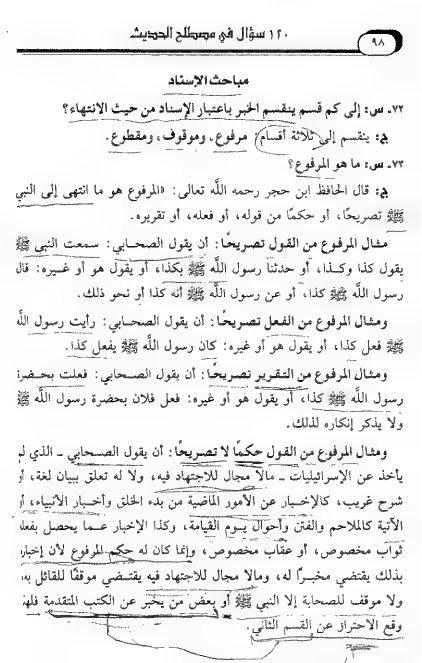 ١٢٠ سؤال في مصطلح الحديث
٩٨
مباحث الإسناد
٧٢ـ س: إلى كم قسم ينقسم الخبر باعتبار الإسناد من حيث الانتهاء؟
ج: ينقسم إلى ثلاثة أقسام: مرفوع، وموقوف، ومقطوع.
٧٣ـ س: ما هو المرفوع؟
ج: قال الحافظ ابن حجر رحمه الله تعالى: «المرفوع هو ما انتهى إلى النبي
ﷺ تصريحًا، أو حكمًا من قوله، أو فعله، أو تقريره.
مثال المرفوع من القول تصريحًا: أن يقول الصحابي: سمعت النبي ﷺ
يقول كذا وكذا، أو حدثنا رسول الله ﷺ بكذا، أو يقول هو أو غيره: قال
رسول الله ﷺ كذا، أو عن رسول الله ﷺ أنه كذا أو نحو ذلك.
ومثال المرفوع من الفعل تصريحًا: أن يقول الصحابي: رأيت رسول الله
ﷺ فعل كذا، أو يقول هو أو غيره: كان رسول الله ﷺ يفعل كذا.
ومثال المرفوع من التقرير تصريحًا: أن يقول الصحابي: فعلت بحضرة
رسول الله ﷺ كذا، أو يقول هو أو غيره: فعل فلان بحضرة رسول الله ﷺ
ولا يذكر إنكاره لذلك.
ومثال المرفوع من القول حكمًا لا تصريحًا: أن يقول الصحابي ـ الذي لم
يأخذ عن الإسرائيليات ـ مالا مجال للاجتهاد فيه، ولا له تعلق ببيان لغة، أو
شرح غريب، كالإخبار عن الأمور الماضية من بدء الخلق وأخبار الأنبياء، أو
الآتية كالملاحم والفتن وأحوال يوم القيامة، وكذا الإخبار عما يحصل بفعله
ثواب مخصوص، أو عقاب مخصوص، وإنما كان له حكم المرفوع لأن إخباره
بذلك يقتضي مخبرًا له، ومالا مجال للاجتهاد فيه يقتضي موقفًا للقائل به،
ولا موقف للصحابة إلا النبي ﷺ أو بعض من يخبر عن الكتب المتقدمة فلهذا
وقع الاحتراز عن القسم الثاني.